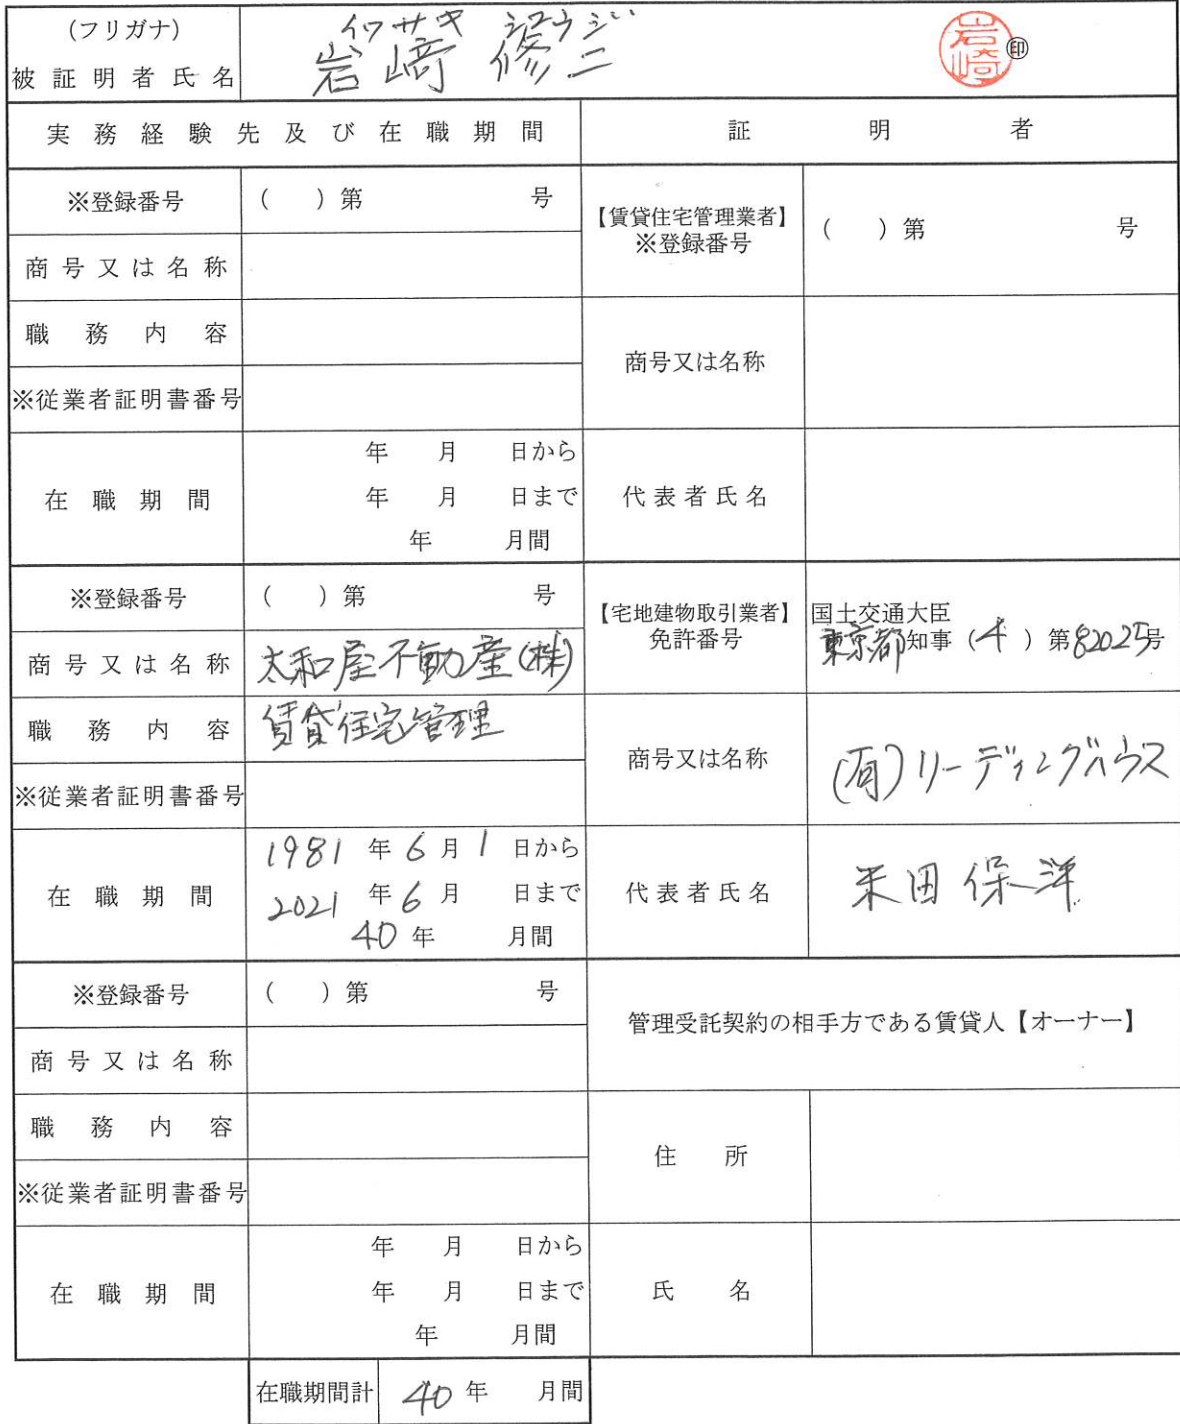 (フリガナ) イワサキ シュウジ
被証明者氏名 岩﨑 修二 岩崎 ㊞
実務経験先及び在職期間 証明者
※登録番号 ( ) 第 号
商号又は名称
職務内容
※従業者証明書番号
在職期間
年 月 日から
年 月 日まで
年 月間
【賃貸住宅管理業者】
※登録番号 ( ) 第 号
商号又は名称
代表者氏名
※登録番号 ( ) 第 号
商号又は名称 太和屋不動産(株)
職務内容 賃貸住宅管理
※従業者証明書番号
在職期間
1981 年 6 月 1 日から
2021 年 6 月 日まで
40 年 月間
【宅地建物取引業者】
免許番号
国土交通大臣
東京都知事 (4) 第82025号
商号又は名称 (有)リーディングハウス
代表者氏名 米田保洋
※登録番号 ( ) 第 号
商号又は名称
職務内容
※従業者証明書番号
在職期間
年 月 日から
年 月 日まで
年 月間
管理受託契約の相手方である賃貸人【オーナー】
住所
氏名
在職期間計 40 年 月間